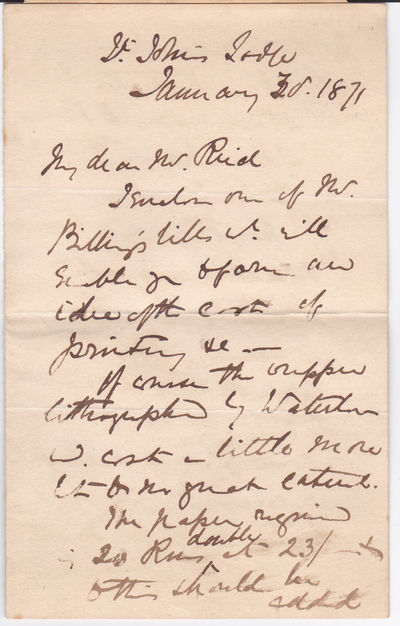 St. Johns Lodge
January 30. 1871
My dear Mr. Reid
I enclose one of Mr.
Billing's bills wh. will
enable you to form an
idea of the cost of
printing &c —
Of course the wrapper
lithographed by Waterlow
w. cost a little more
but to no great extent.
The paper required
double
20 Rms at 23/-
& this should be
added